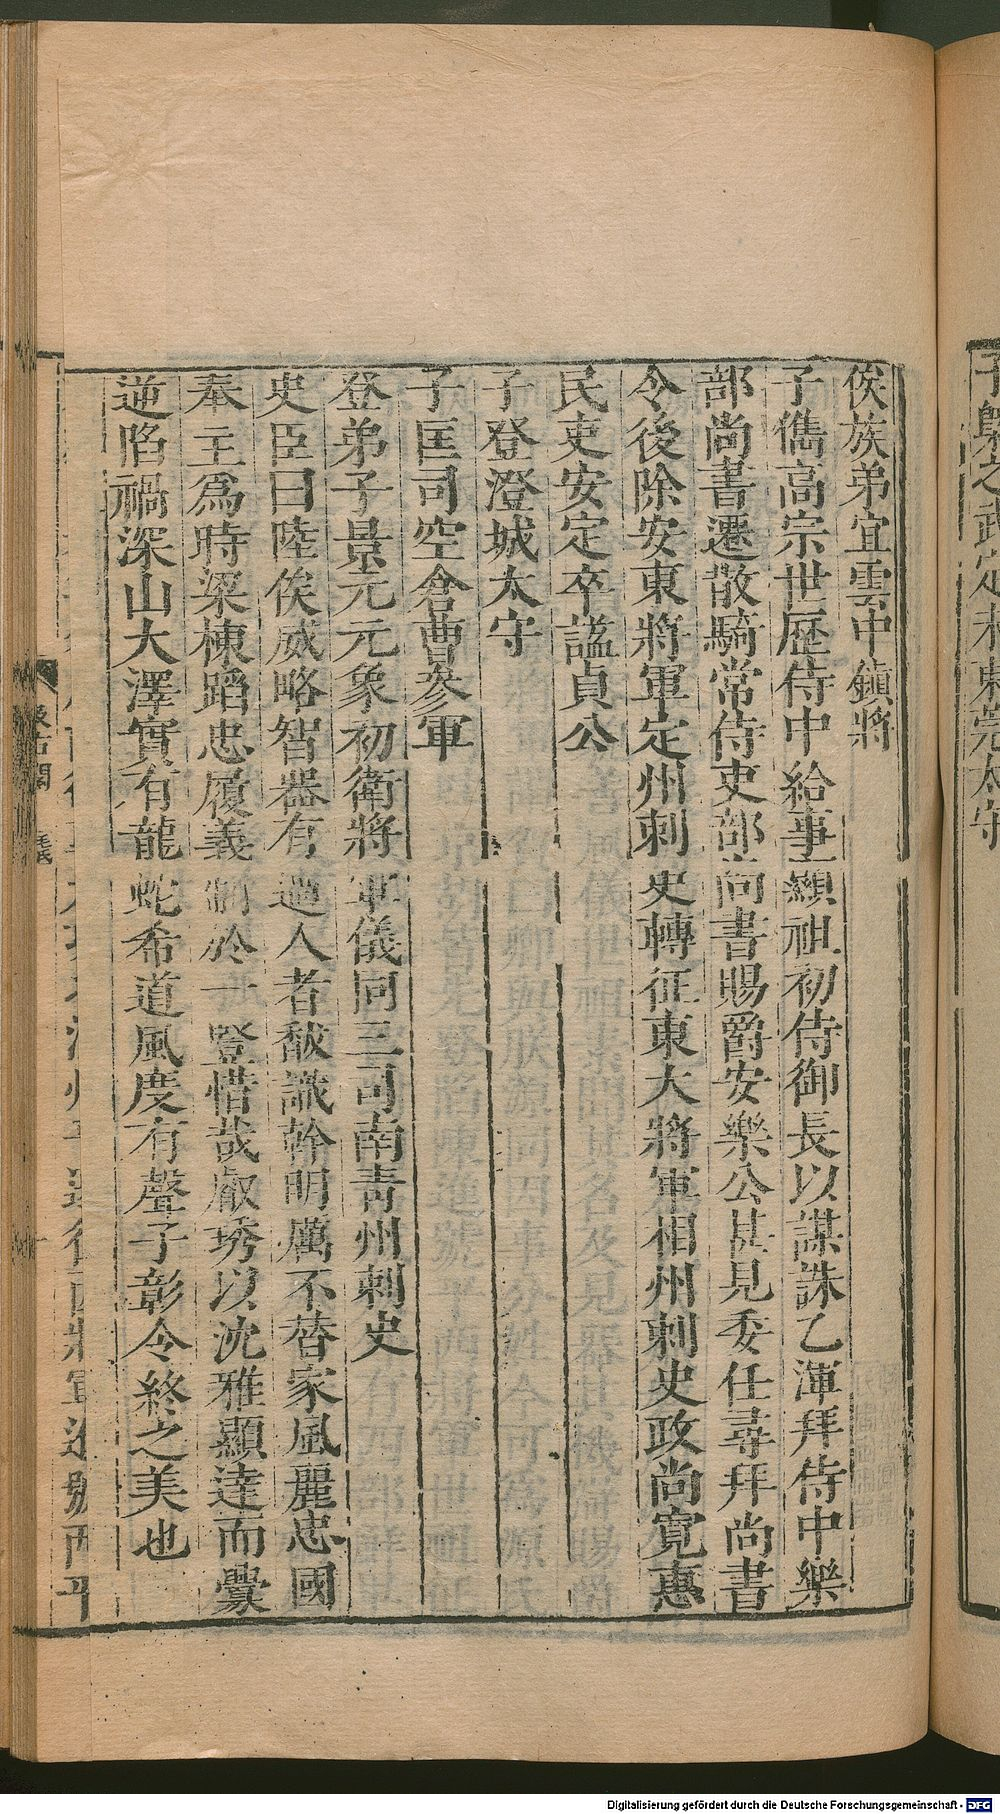 子㬎之武定末東莞太守
俟族弟宜雲中鎮將
子儁高宗世歷侍中給事顯祖初侍御長以謀誅乙渾拜侍中樂
部尚書遷散騎常侍吏部尚書賜爵安樂公甚見委任尋拜尚書
令後除安東將軍定州刺史轉征東大將軍相州刺史政尚寬惠
民吏安定卒謚貞公
子登澄城太守
子匡司空倉曹參軍
登弟子景元元象初衛將軍儀同三司南青州刺史
史臣曰陸俟威略智器有過人者馛識幹明厲不替家風麗忠國
奉主爲時梁棟蹈忠履義制於一豎惜哉叡琇以沈雅顯達而釁
逆陷禍深山大澤實有龍蛇希道風度有聲子彰令終之美也
汲古閣
毛氏
Digitalisierung gefördert durch die Deutsche Forschungsgemeinschaft - DFG